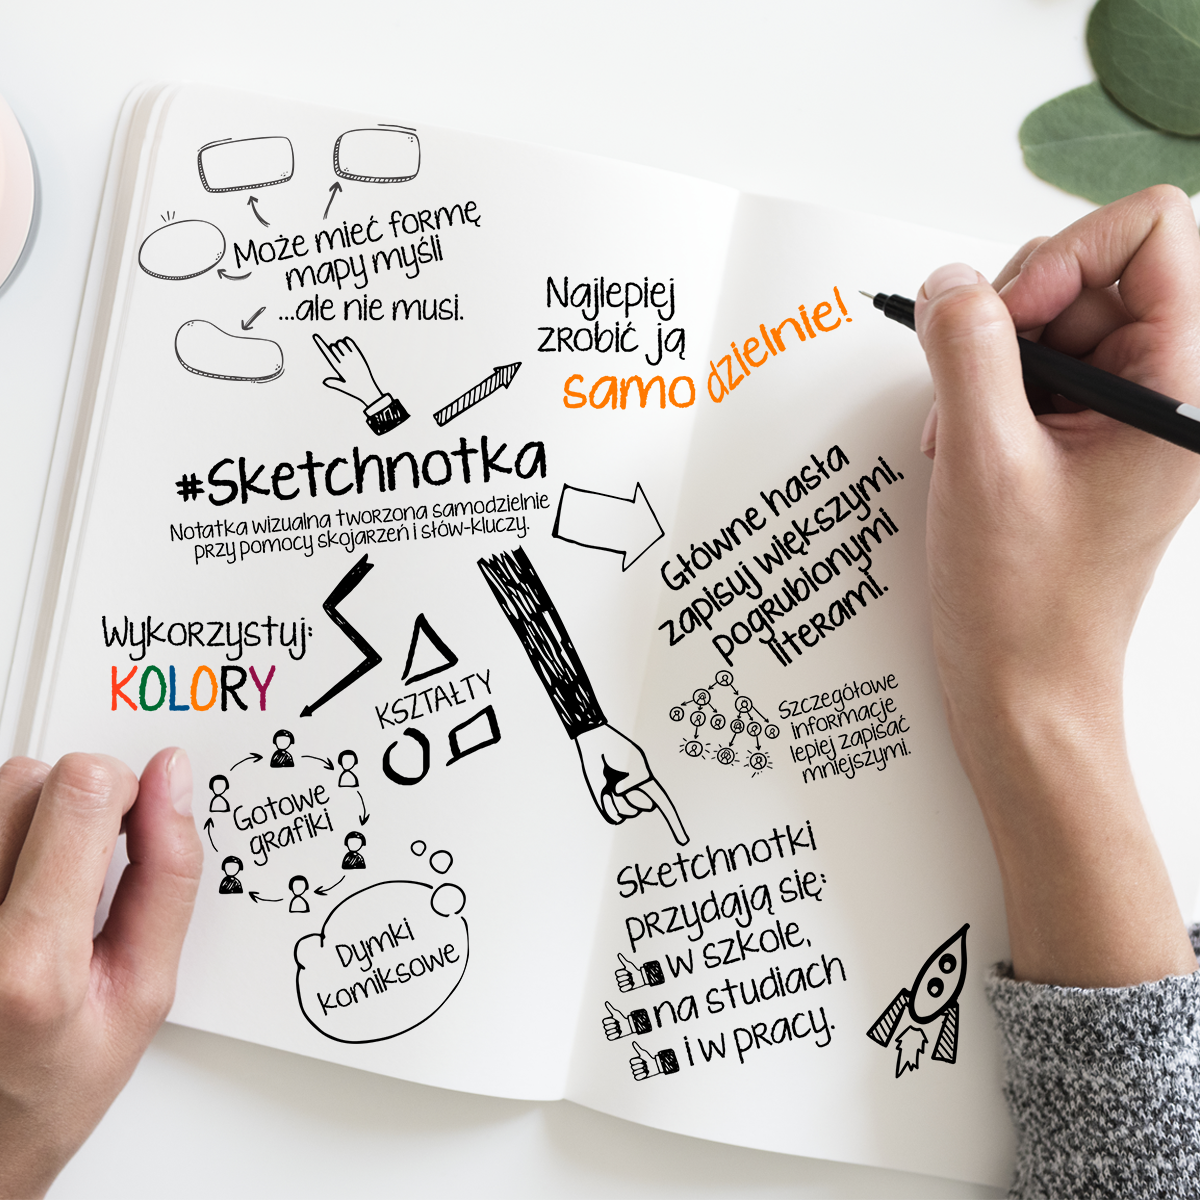 Może mieć formę
mapy myśli
...ale nie musi.
Najlepiej
zrobić ją
samodzielnie!
#Sketchnotka
Notatka wizualna tworzona samodzielnie
przy pomocy skojarzeń i słów-kluczy.
Główne hasła
zapisuj większymi,
pogrubionymi
literami.
Szczegółowe
informacje
lepiej zapisać
mniejszymi.
Wykorzystuj:
KOLORY
KSZTAŁTY
Gotowe
grafiki
Dymki
komiksowe
Sketchnotki
przydają się:
w szkole,
na studiach
i w pracy.